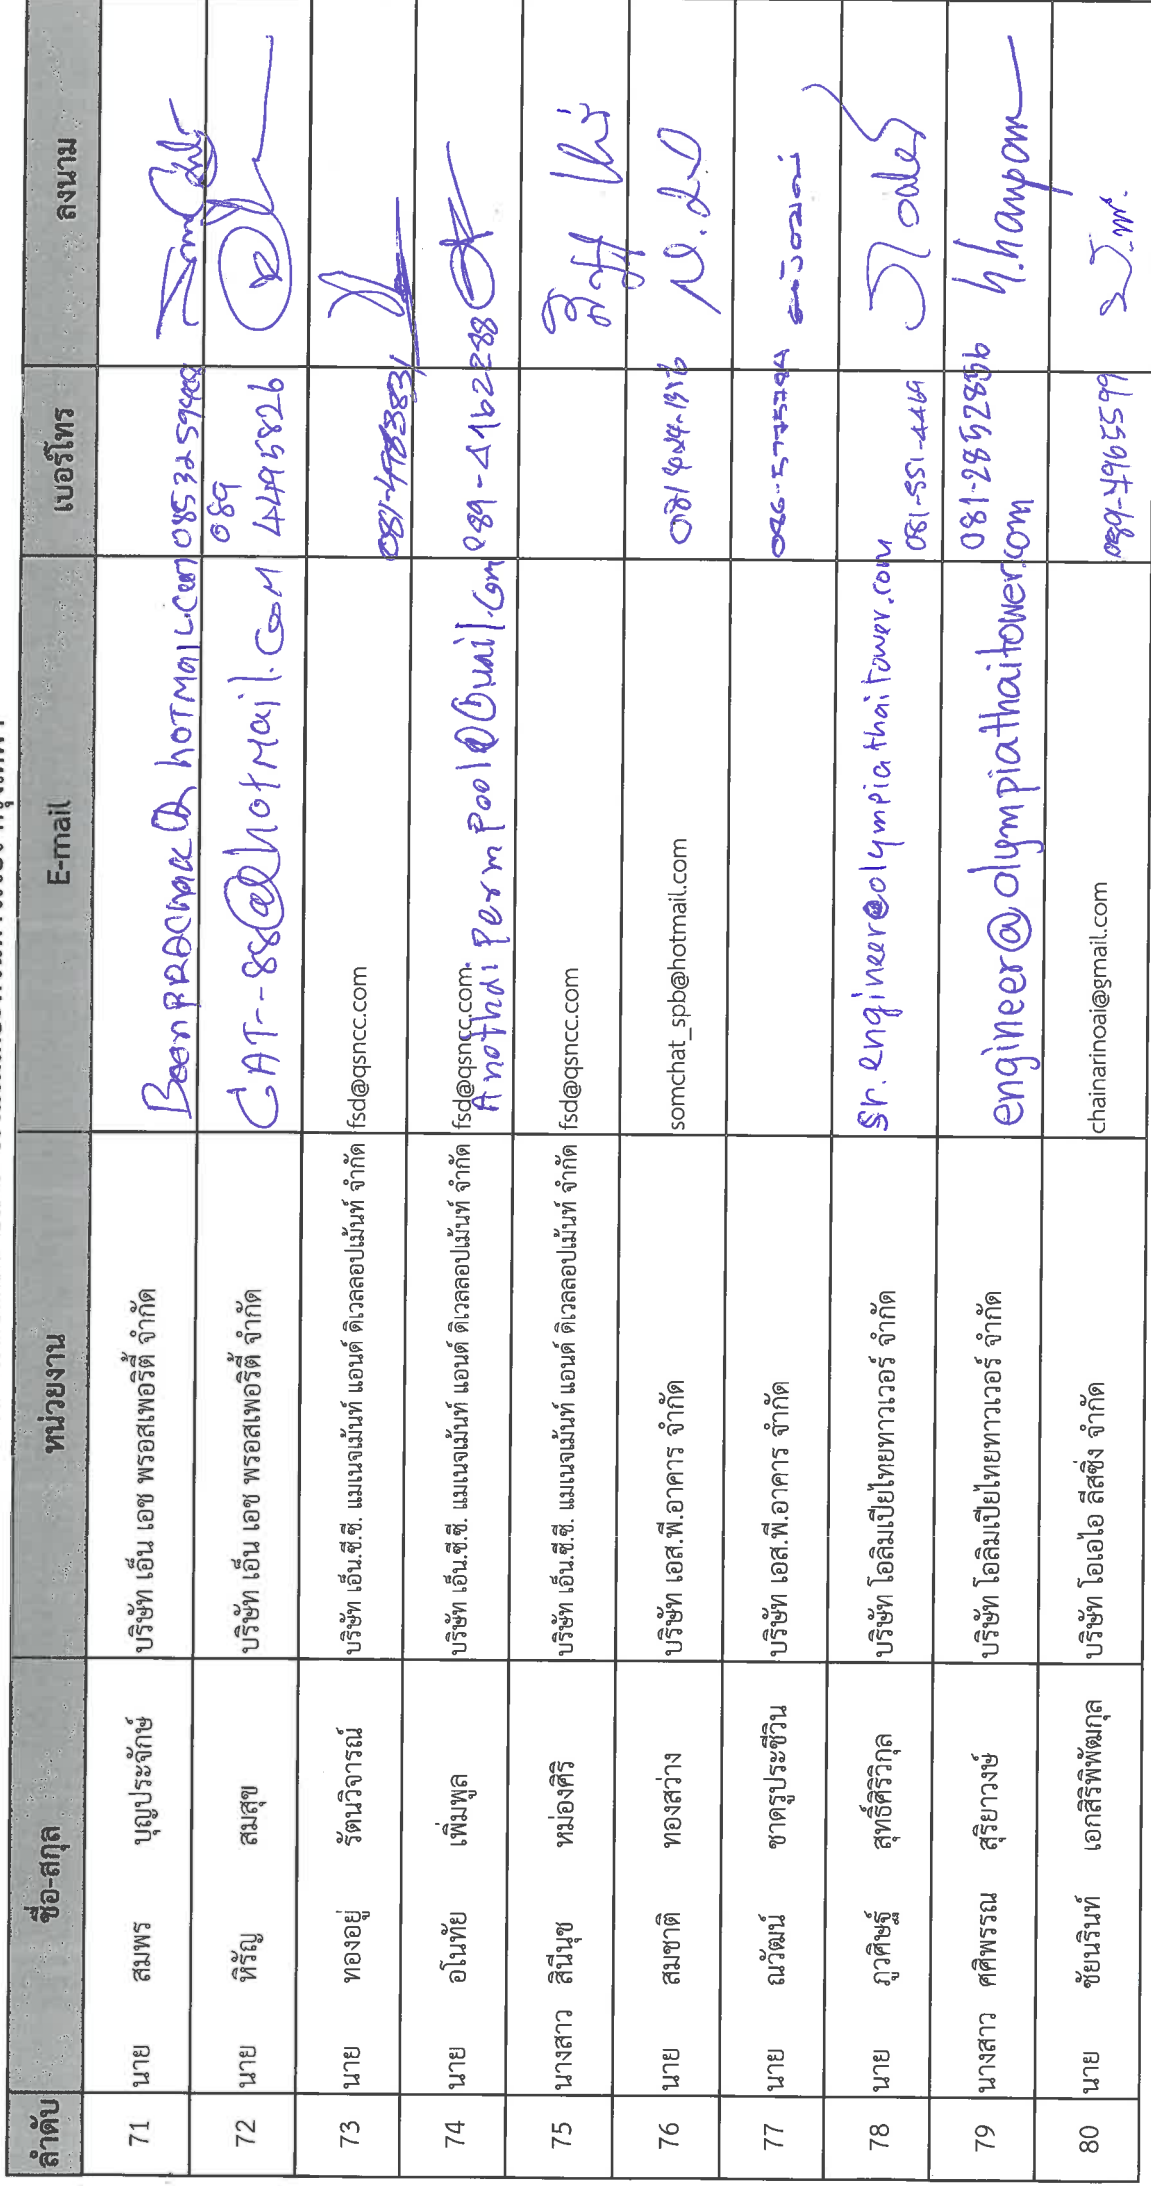 ลำดับ ชื่อ-สกุล หน่วยงาน E-mail เบอร์โทร ลงนาม
71 นาย สมพร บุญประจักษ์ บริษัท เอ็น เอช พรอสเพอริตี้ จำกัด
72 นาย หิรัญ สมสุข บริษัท เอ็น เอช พรอสเพอริตี้ จำกัด CAT--88@hotmail.com 089 4495826
73 นาย ทองอยู่ รัตนวิจารณ์ บริษัท เอ็น.ซี.ซี. แมเนจเม้นท์ แอนด์ ดิเวลลอปเม้นท์ จำกัด fsd@qsncc.com
74 นาย อโนทัย เพิ่มพูล บริษัท เอ็น.ซี.ซี. แมเนจเม้นท์ แอนด์ ดิเวลลอปเม้นท์ จำกัด fsd@qsncc.com 089-4162288
75 นางสาว สินีนุช หม่องศิริ บริษัท เอ็น.ซี.ซี. แมเนจเม้นท์ แอนด์ ดิเวลลอปเม้นท์ จำกัด fsd@qsncc.com
76 นาย สมชาติ ทองสว่าง บริษัท เอส.พี.อาคาร จำกัด somchat_spb@hotmail.com
77 นาย ณวัฒน์ ชาตรูประชีวิน บริษัท เอส.พี.อาคาร จำกัด
78 นาย ภูวศิษฐ์ สุทธิ์ศิริวิกุล บริษัท โอลิมเปียไทยทาวเวอร์ จำกัด sr.engineer@olympiathaitower.com 081-551-4469
79 นางสาว ศศิพรรณ สุริยาวงษ์ บริษัท โอลิมเปียไทยทาวเวอร์ จำกัด engineer@olympiathaitower.com 081-2852856
80 นาย ชัยนรินท์ เอกสิริพิพัฒกุล บริษัท โอเอไอ ลีสซิ่ง จำกัด chainarinoai@gmail.com 089-4965599